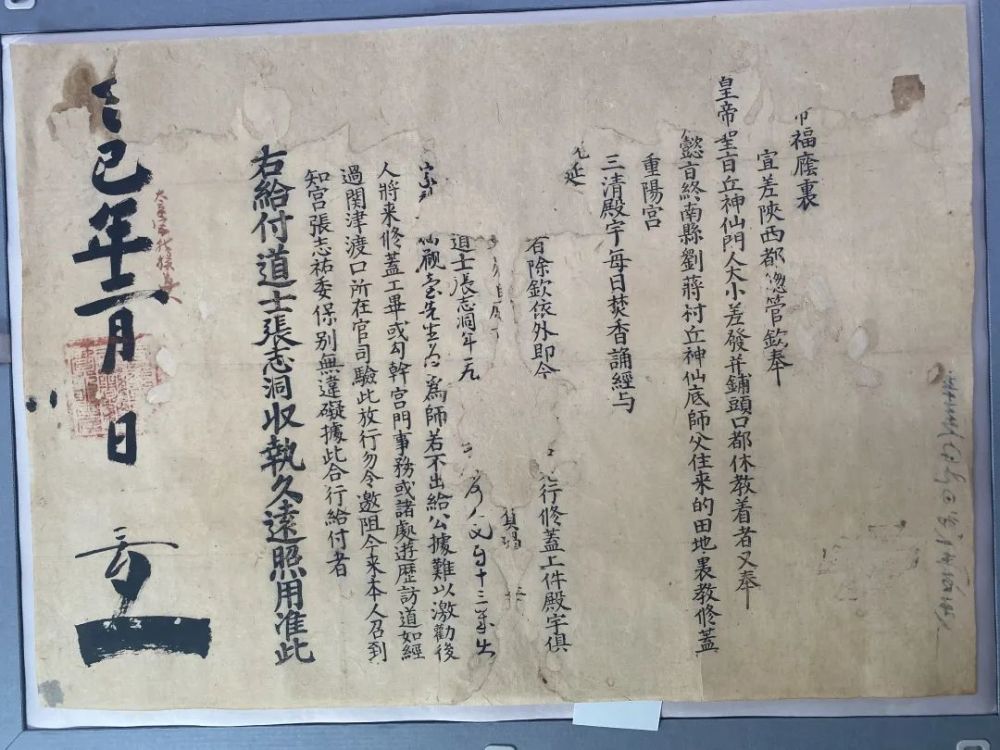 福廕裏
宣差陝西都揔管欽奉
皇帝聖旨丘神仙門人大小差發并鋪頭口都休教着者又奉
懿旨終南縣劉蔣村丘神仙底師父住來的田地裏教修蓋
重陽宮
三清殿宇每日焚香誦經与
延
有除欽依外即今 行修蓋上件殿宇俱
道士張志洞年 十三
先生 為師若不出給公據難以激勸後
人將來修蓋工畢或勾幹宮門事務或諸處遊歷訪道如經
過関津渡口所在官司驗此放行勿令邀阻今來本人召到
知宮張志祐委保別無違礙據此合行給付者
右給付道士張志洞收執久遠照用准此
巳年二月 日